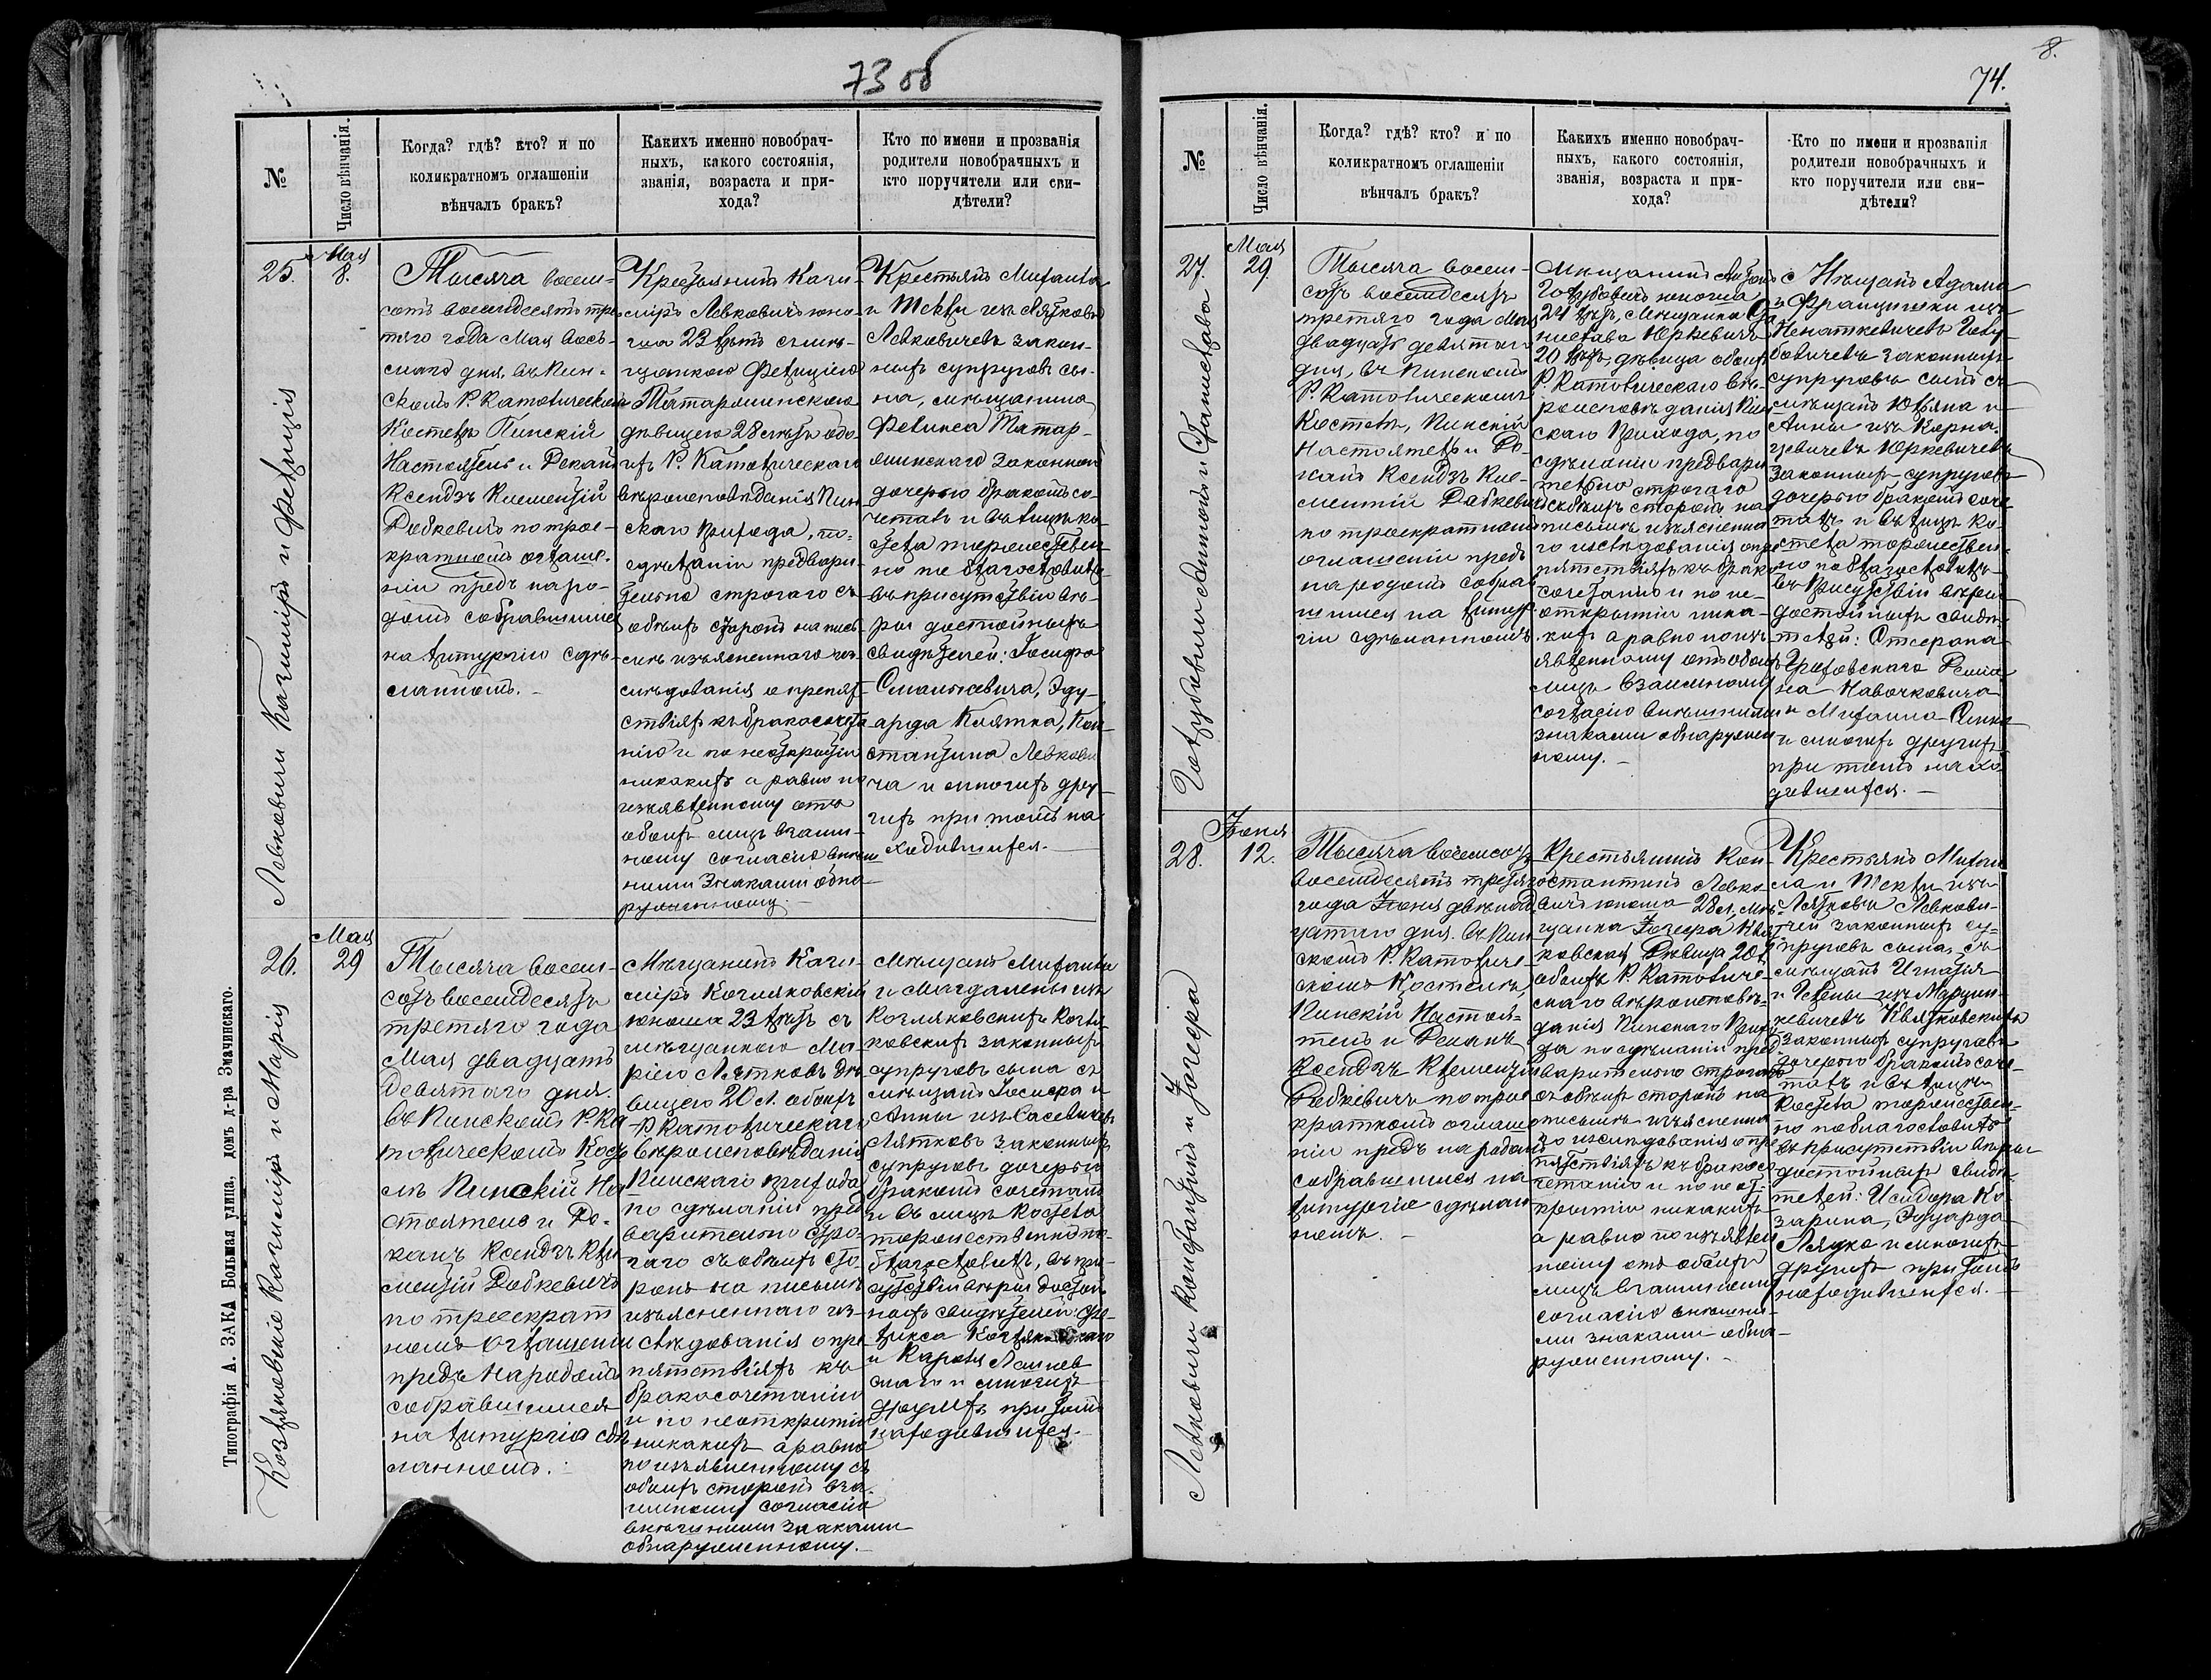 73 об
№
Число вѣнчанія.
Когда? гдѣ? кто? и по
коликратномъ оглашеніи
вѣнчалъ бракъ?
Какихъ именно новобрач-
ныхъ, какого состоянія,
званія, возраста и при-
хода?
Кто по имени и прозванія
родители новобрачныхъ и
кто поручители или сви-
дѣтели?
25.
Мая
8.
Левковичи Казимиръ и Фелиція
Тысяча восем-
сотъ восемдесятъ тре-
тяго года Мая вось-
маго дня, въ Пин-
скомъ Р. Католическомъ
Костелѣ Пинскій
Настоятель и Деканъ
Ксендзъ Клементій
Добкевичъ по трое-
кратномъ оглаше-
ніи предъ наро-
домъ собравшимся
на литургію сдѣ-
ланномъ. -
Крестьянинъ Кази-
міръ Левковичъ юно-
ша 23 лѣтъ съ мѣ-
щанкою Фелиціею
дѣвицею 28 лѣтъ обо-
ихъ Р. Католическаго
вѣроисповѣданія Пин
скаго прихода, по
сдѣланіи предвари-
тельно строгаго съ
обѣихъ сторонъ на пись-
мѣ изъясненнаго из-
слѣдованія о препят-
ствіяхъ къ бракосочета
нію и по неоткрытіи
никакихъ а равно по
изъявленному отъ
обоихъ лицъ взаим-
ному согласію внѣш
ними знаками обна-
руженному. -
Крестьянъ Михаила
и Теклі изъ
Левковичевъ закон-
ныхъ супруговъ сы-
на, мѣщанина
Феликса Татар-
жинскаго законной
дочерью бракомъ со-
четалъ и въ лицѣ ко-
стела торжествен-
но поблагословилъ
въ присутствіи вѣ-
ры достойныхъ
свидѣтелей: Іосифа
Сташкевича, Эду-
арда Кляпка, Кон
стантина Левкови
ча и многихъ дру-
гихъ при томъ на
ходившихся. -
26.
Мая
29
Козляковскіе Казиміръ и Марія
Тысяча восем-
сотъ восемдесятъ
третяго года
Мая двадцать
девятаго дня.
въ Пинскомъ Р. Ка
толическомъ Косте
лѣ Пинскій На
стоятель и Де-
канъ Ксендзъ Кле
ментій Добкевичъ
по троекрат
номъ оглашеніи
предъ народомъ
собравшимся
на литургію сдѣ
ланномъ. -
Мѣщанинъ Кази-
міръ Козляковскій
юноша 23 лѣтъ съ
мѣщанкою Ма-
ріею Лятковъ дѣ-
вицею 20 л. обоихъ
Р. Католическаго
вѣроисповѣданія
Пинскаго прихода
по сдѣланіи пред
варительно стро-
гаго съ обѣихъ сто-
ронъ на письмѣ
изъясненнаго из-
слѣдованія о пре
пятствіяхъ къ
бракосочетанію
и по неоткрытіи
никакихъ а равно
по изъявленному съ
обѣихъ сторонъ вза-
имному согласію
внѣшними знаками
обнаруженному. -
Мѣщанъ Михаила
и Магдалены изъ
Козляковскихъ Козля-
ковскихъ законныхъ
супруговъ сына съ
мѣщанъ Іосифа и
Анны изъ Сасевичевъ
Лятковъ законныхъ
супруговъ дочерью
бракомъ сочеталъ
и въ лицѣ костела
торжественно по-
благословилъ, въ при-
сутствіи вѣры достой
ныхъ свидѣтелей: Фе-
ликса
и Кароля
и многихъ
другихъ при томъ
находившихся. -
8.
74.
№
Число вѣнчанія.
Когда? гдѣ? кто? и по
коликратномъ оглашеніи
вѣнчалъ бракъ?
Какихъ именно новобрач-
ныхъ, какого состоянія,
званія, возраста и при-
хода?
Кто по имени и прозванія
родители новобрачныхъ и
кто поручители или сви-
дѣтели?
27.
Мая
29.
Голубовичи Антонъ и Станислава
Тысяча восем-
сотъ восемдесятъ
третяго года Мая
двадцать девятаго
дня, въ Пинскомъ
Р. Католическомъ
Костелѣ, Пинскій
Настоятель и Де-
канъ Ксендзъ Кле-
ментій Добкевичъ
по троекратномъ
оглашеніи предъ
народомъ собрав
шимся на литур-
гіи сдѣланномъ
Мѣщанинъ Антонъ
Голубовичъ юноша
24 лѣтъ, мѣщанка Ста
нислава Юркевичъ
20 лѣтъ, дѣвица обоихъ
Р. Католическаго вѣ-
роисповѣданія Пин
скаго Прихода, по
сдѣланіи предвари
тельно строгаго
съ обѣихъ сторонъ на
письмѣ изъясненна
го изслѣдованія о пре
пятствіяхъ къ брако
сочетанію и по не-
открытіи ника-
кихъ а равно по изъ-
явленному отъ обоихъ
лицъ взаимному
согласію внѣшними
знаками обнаружен
ному. -
Мѣщанъ Адама
и Францишки изъ
Голу
бовичевъ законныхъ
супруговъ сына съ
мѣщанъ Юліяна и
Анны изъ Корна-
цевичевъ Юркевичевъ
законныхъ супруговъ
дочерью бракомъ соче
талъ и въ лицѣ ко-
стела торжествен-
но поблагословилъ
въ присутствіи вѣры
достойныхъ свидѣ-
телей:
и Михаила
и многихъ другихъ
при томъ нахо-
дившихся. -
28.
Іюня
12.
Левковичи Константинъ и Іозефа
Тысяча восемсотъ
восемдесятъ третяго
года Іюня двѣнад
цатаго дня. въ Пин
скомъ Р. Католиче-
скомъ Костелѣ,
Пинскій Настоя-
тель и Деканъ
Ксендзъ Клементій
Добкевичъ по трое
кратномъ оглаше
ніи предъ народомъ
собравшимся на
литургію сдѣлан
номъ. -
Крестьянинъ Кон-
стантинъ Левко-
вичъ юноша 28 л. мѣ-
щанка Іозефа Квят-
ковская дѣвица 20 л.
обоихъ Р. Католиче-
скаго вѣроисповѣ-
данія Пинскаго Прихо
да по сдѣланіи пред
варительно строгаго
съ обѣихъ сторонъ на
письмѣ изъясненна
го изслѣдованія о пре
пятствіяхъ къ бракосо
четанію и по неот-
крытіи никакихъ
а равно по изъявлен
ному отъ обоихъ
лицъ взаимному
согласію внѣшни-
ми знаками обна-
руженному. -
Крестьянъ Михаи
ла и Теклі изъ
Левкови-
чей законныхъ су-
пруговъ сына, съ
мѣщанъ Игнатія
и Гелены изъ Марцин-
кевичевъ Квятковскихъ
законныхъ супруговъ
дочерью бракомъ соче-
талъ и въ лицѣ
костела торжествен-
но поблагословилъ
въ присутствіи вѣры
достойныхъ свидѣ-
телей: Исидора Ко-
зарина, Эдуарда
Ляцко и многихъ
другихъ при томъ
находившихся. -
Типографія А. ЗАКА Большая улица, домъ д-ра Змачинскаго.